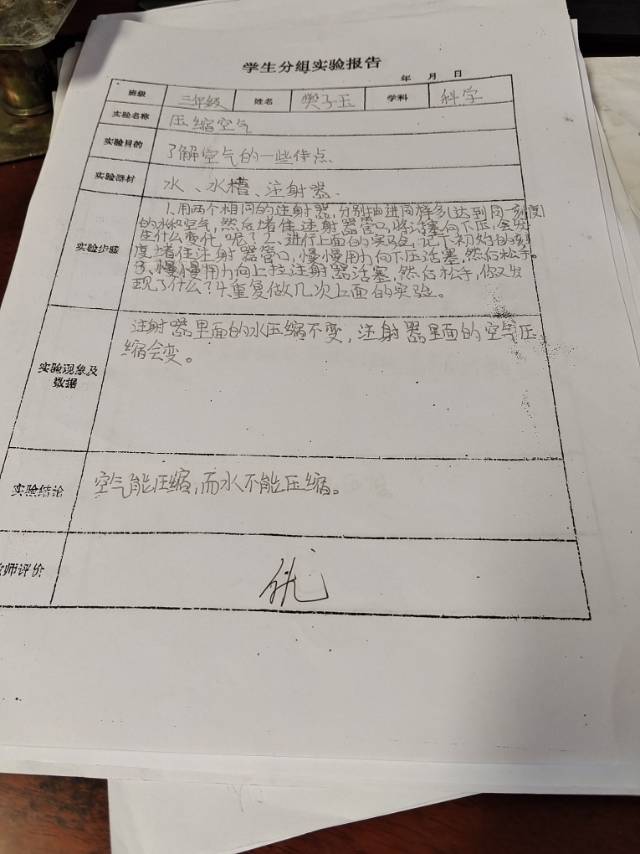 学生分组实验报告
年 月 日
班级 三年级 姓名 樊子玉 学科 科学
实验名称 压缩空气
实验目的 了解空气的一些特点.
实验器材 水、水槽、注射器.
实验步骤
1.用两个相同的注射器,分别抽进同样多(达到同一刻度)
的水和空气,然后堵住注射器管口,将活塞向下压,会发
生什么变化呢?2、进行上面的实验,记下初始的刻
度堵住注射器管口,慢慢用力向下压活塞,然后松手。
3、慢慢用力向上拉注射器活塞,然后松手,你又发
现了什么?4.重复做几次上面的实验。
实验现象及
数据
注射器里面的水压缩不变,注射器里面的空气压
缩会变。
实验结论 空气能压缩,而水不能压缩。
师评价 优